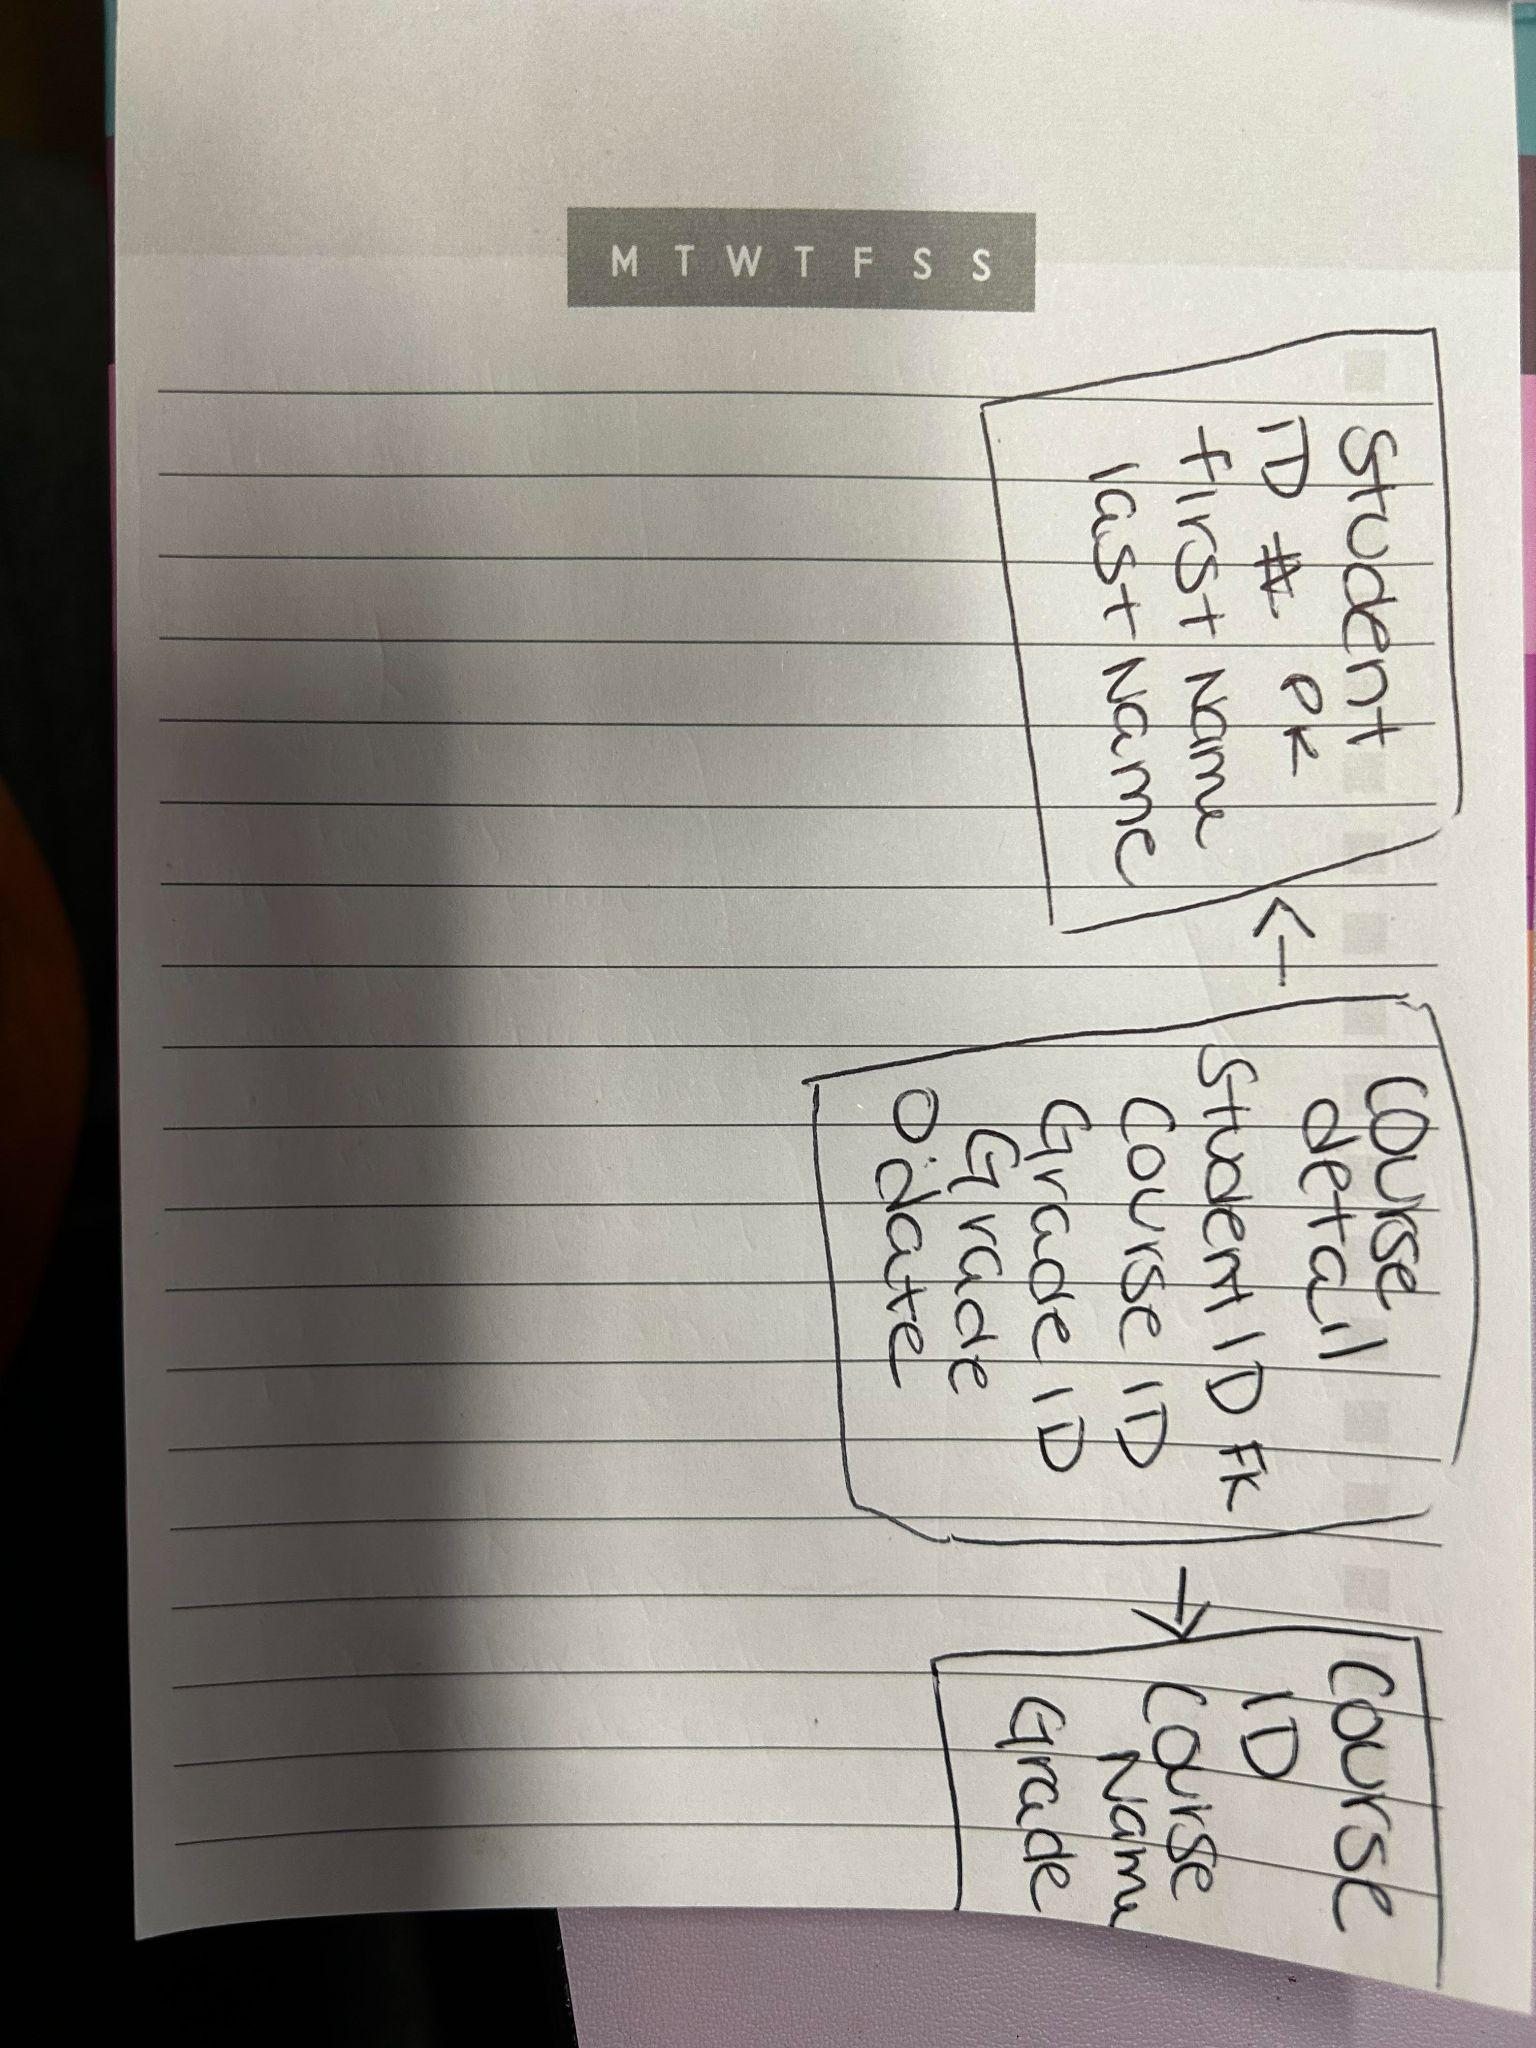 M T W T F S S
Student
ID # PK
First Name
last Name
←
Course
detail
Student ID FK
Course ID
Grade ID
Grade
Odate
→
Course
ID
Course
Name
Grade